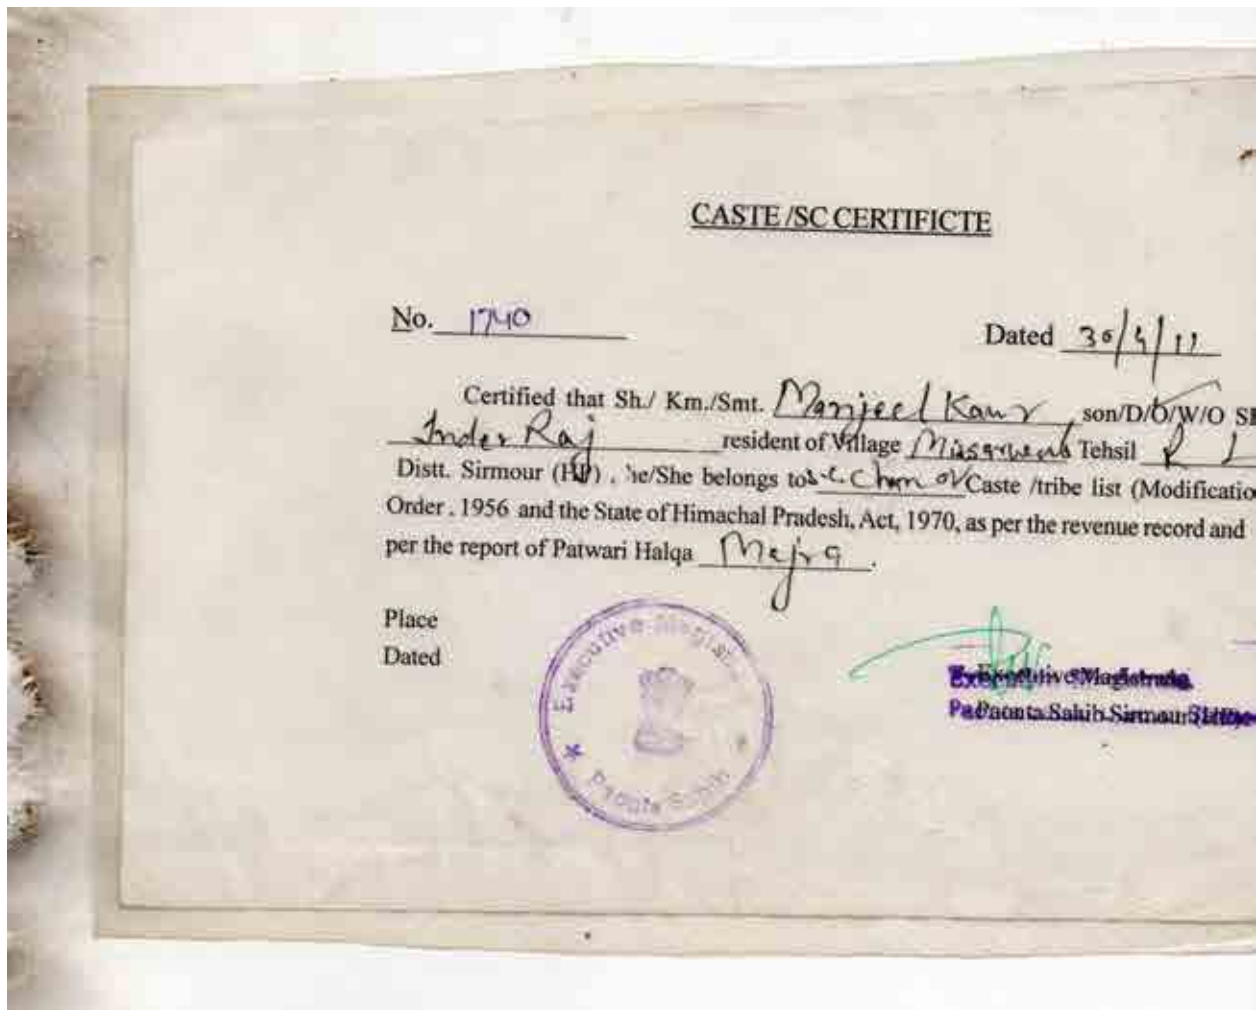 CASTE /SC CERTIFICTE
No. 1740
Dated 30/4/11
Certified that Sh./ Km./Smt. Manjeet Kaur son/D/O/W/O
Inder Raj resident of Village Tehsil
Distt. Sirmour (HP) . he/She belongs to Caste /tribe list
Order . 1956 and the State of Himachal Pradesh, Act, 1970, as per the revenue record and
per the report of Patwari Halqa Majra .
Place
Dated
Executive Magistrate
Paonta Sahib
Executive Magistrate
Paonta Sahib Sirmour